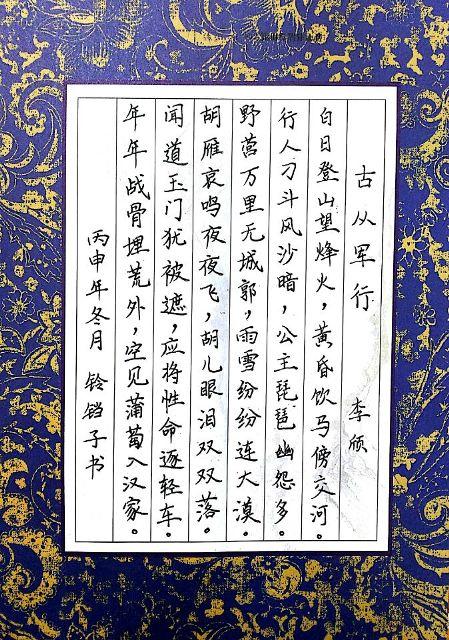 古从军行 李颀
白日登山望烽火，黄昏饮马傍交河。
行人刁斗风沙暗，公主琵琶幽怨多。
野营万里无城郭，雨雪纷纷连大漠。
胡雁哀鸣夜夜飞，胡儿眼泪双双落。
闻道玉门犹被遮，应将性命逐轻车。
年年战骨埋荒外，空见蒲萄入汉家。
丙申年冬月 铃铛子书